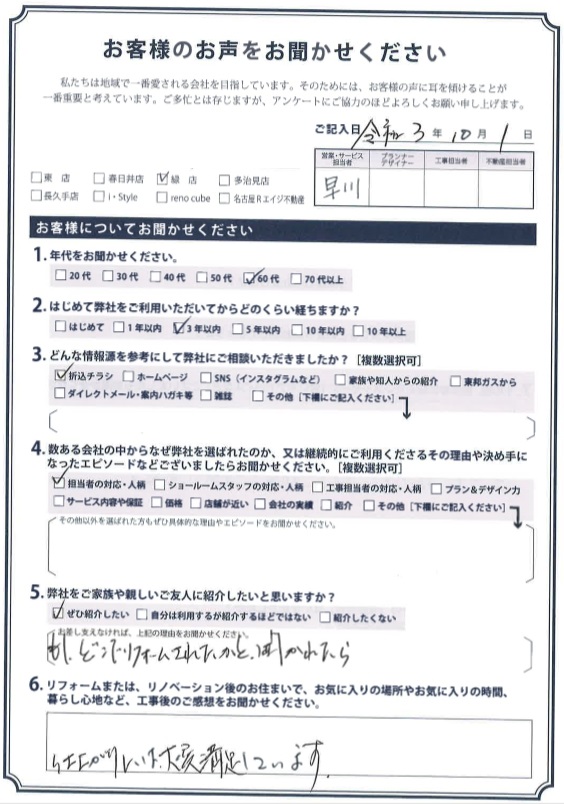 お客様のお声をお聞かせください
私たちは地域で一番愛される会社を目指しています。そのためには、お客様の声に耳を傾けることが
一番重要と考えています。ご多忙とは存じますが、アンケートにご協力のほどよろしくお願い申し上げます。
ご記入日 令和 3 年 10 月 1 日
営業・サービス担当者 プランナーデザイナー 工事担当者 不動産担当者
早川
□東 店 □春日井店 ☑緑 店 □多治見店
□長久手店 □i・Style □reno cube □名古屋Rエイジ不動産
お客様についてお聞かせください
1. 年代をお聞かせください。
□20代 □30代 □40代 □50代 ☑60代 □70代以上
2. はじめて弊社をご利用いただいてからどのくらい経ちますか？
□はじめて □1年以内 ☑3年以内 □5年以内 □10年以内 □10年以上
3. どんな情報源を参考にして弊社にご相談いただきましたか？［複数選択可］
☑折込チラシ □ホームページ □SNS（インスタグラムなど） □家族や知人からの紹介 □東邦ガスから
□ダイレクトメール・案内ハガキ等 □雑誌 □その他［下欄にご記入ください］
4. 数ある会社の中からなぜ弊社を選ばれたのか、又は継続的にご利用くださるその理由や決め手に
なったエピソードなどございましたらお聞かせください。［複数選択可］
☑担当者の対応・人柄 □ショールームスタッフの対応・人柄 □工事担当者の対応・人柄 □プラン&デザイン力
□サービス内容や保証 □価格 □店舗が近い □会社の実績 □紹介 □その他［下欄にご記入ください］
その他以外を選ばれた方もぜひ具体的な理由やエピソードをお聞かせください。
5. 弊社をご家族や親しいご友人に紹介したいと思いますか？
☑ぜひ紹介したい □自分は利用するが紹介するほどではない □紹介したくない
お差し支えなければ、上記の理由をお聞かせください。
もし、どこでリフォームされたかと、聞かれたら
6. リフォームまたは、リノベーション後のお住まいで、お気に入りの場所やお気に入りの時間、
暮らし心地など、工事後のご感想をお聞かせください。
仕上がりには、大変満足しています。